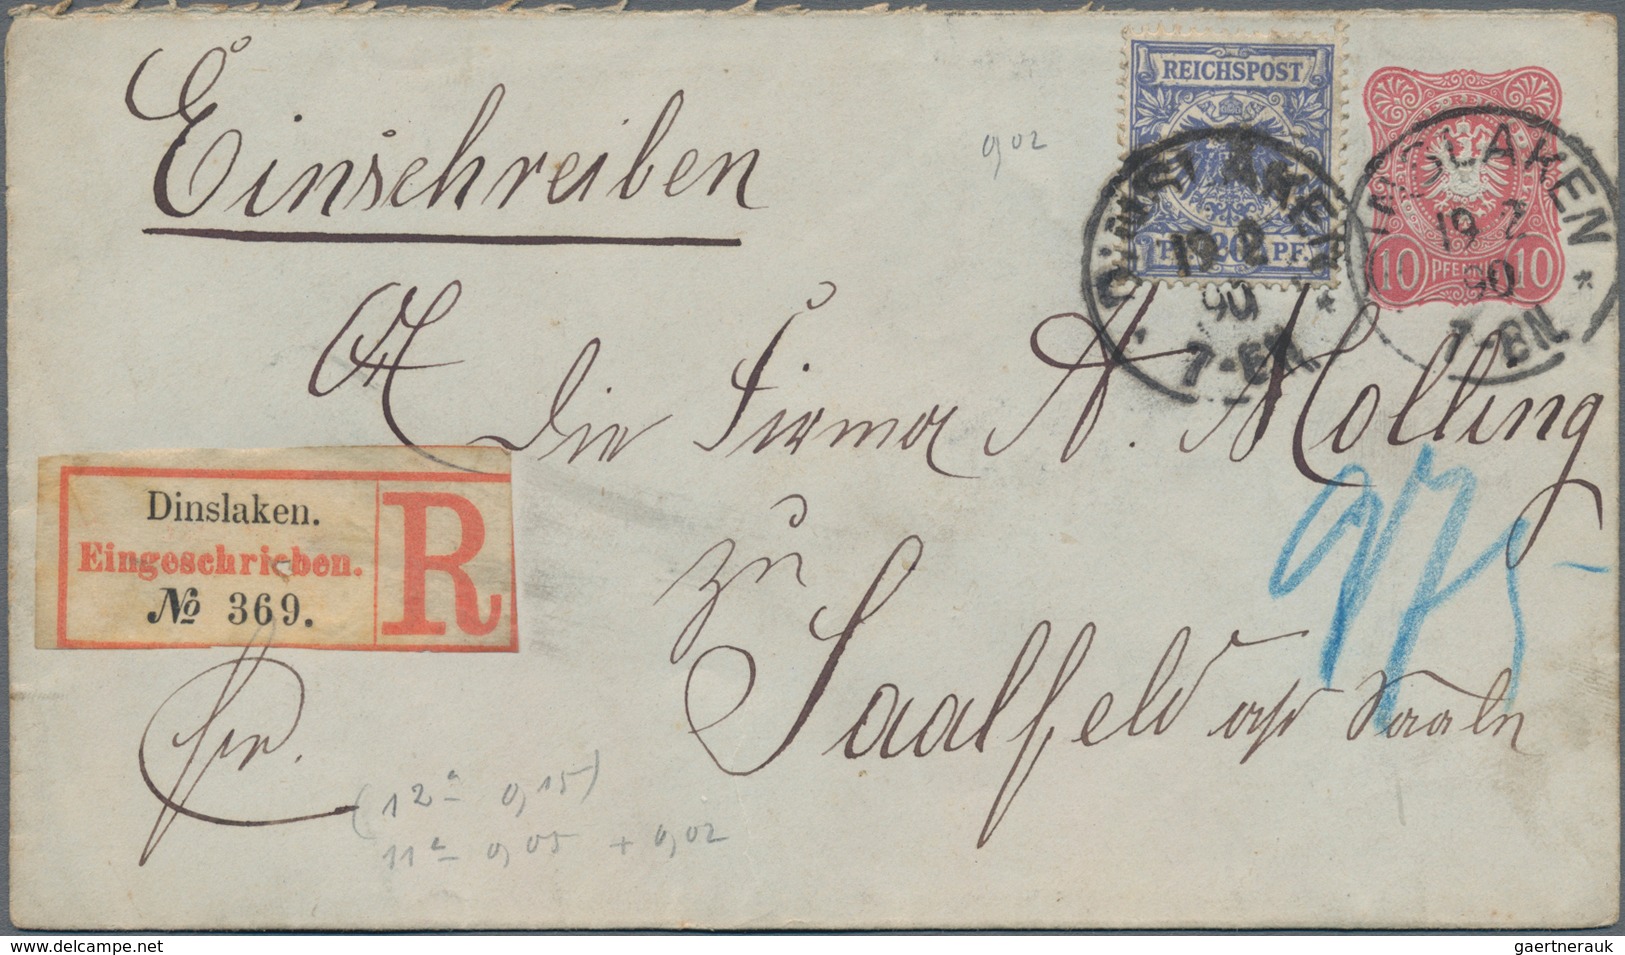 Einschreiben
0,02
REICHSPOST
PF. 20 PF.
DINSLAKEN
19 2
90
7-EN.
10 PFENNIG 10
DINSLAKEN
19 2
90
7-EN.
An
die Firma A. Molling
zu
Saalfeld a/d Saale
975
Dinslaken.
Eingeschrieben.
№ 369.
R
fr.
(12a 0,15)
11a 0,05 + 0,02
www.delcampe.net
gaertnerauk